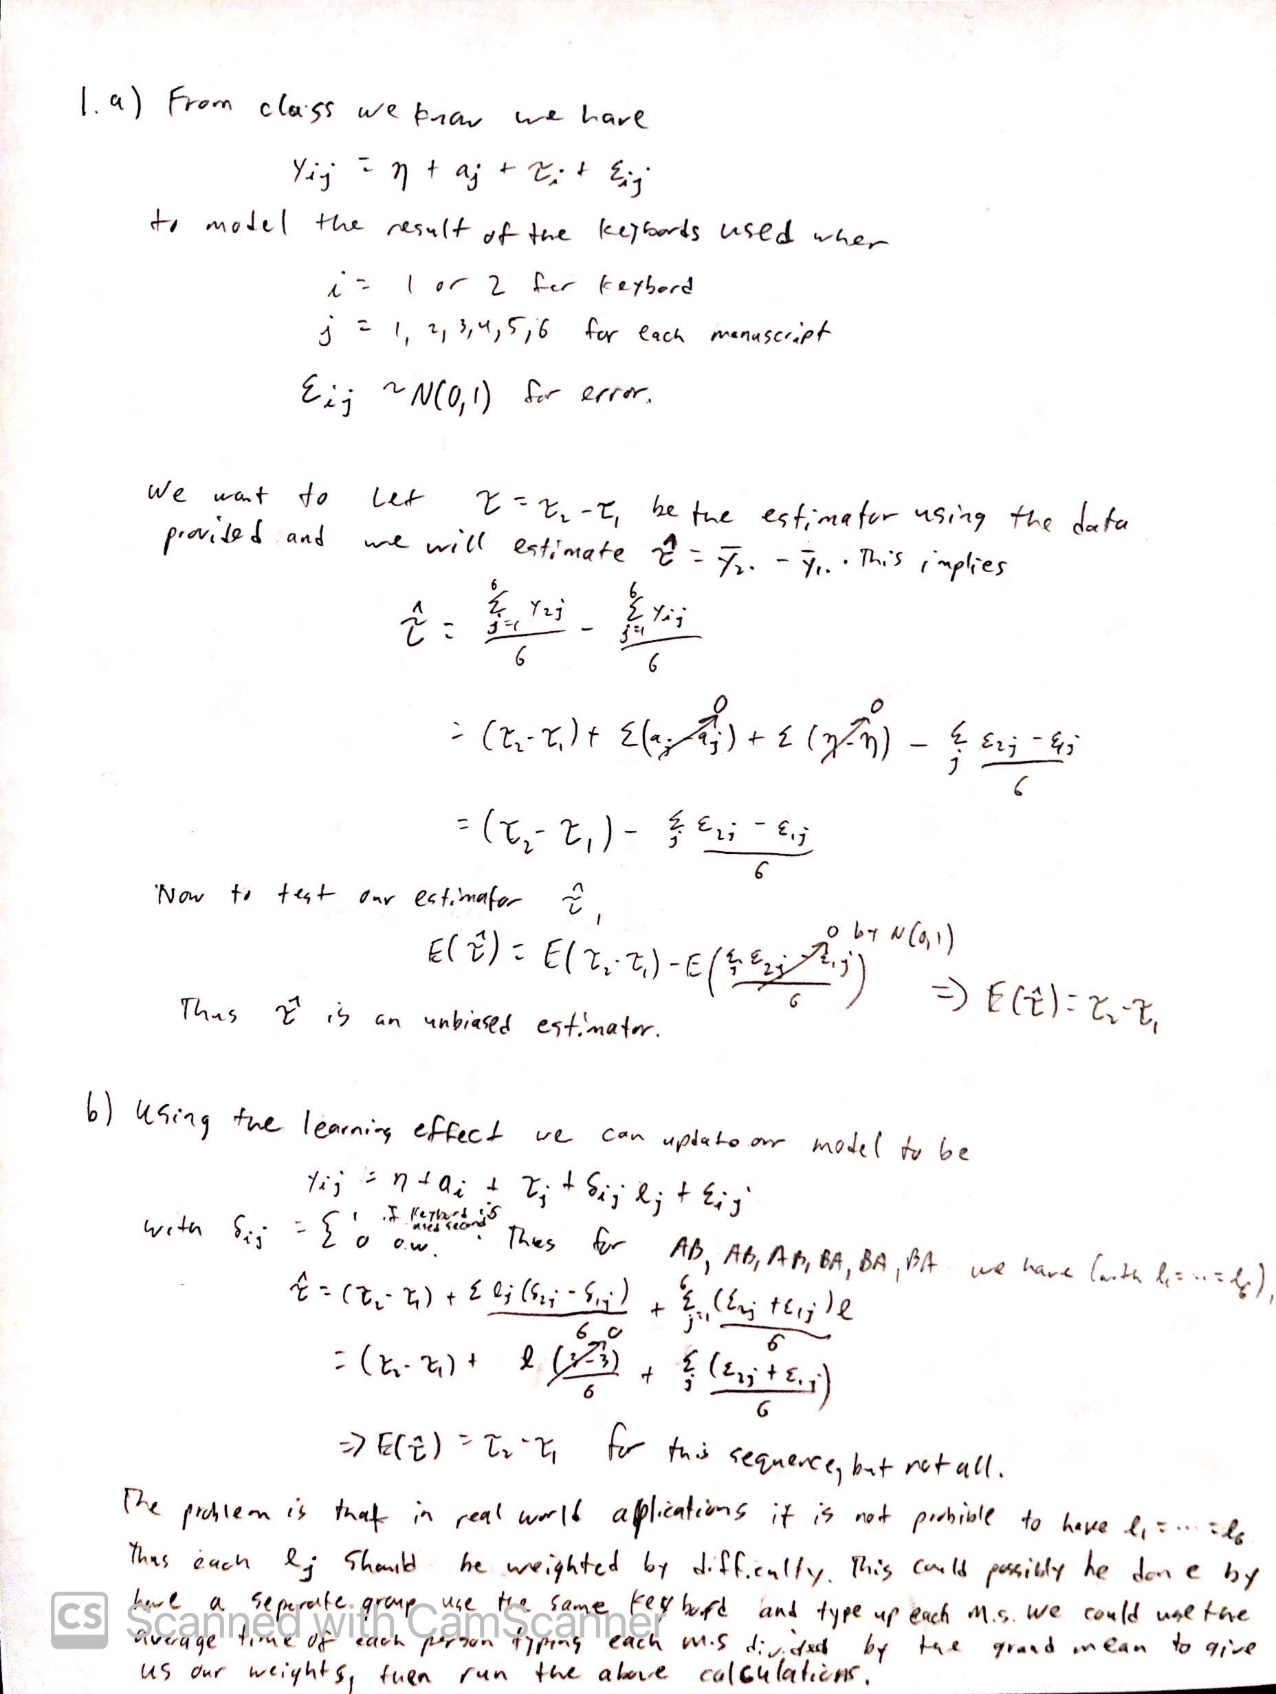 1. a) From class we know we have
Yij = η + aj + τi + εij
to model the result of the keybords used wher
i = 1 or 2 for keybord
j = 1, 2, 3, 4, 5, 6 for each manuscript
εij ~ N(0,1) for error.
We want to Let τ = τ2 - τ1 be the estimator using the data
provided and we will estimate τ̂ = ȳ2. - ȳ1. . This implies
τ̂ = Σ(j=1 to 6) Y2j / 6 - Σ(j=1 to 6) Yij / 6
= (τ2 - τ1) + Σ(aj - aj) 0 + Σ(η - η) 0 - Σj ε2j - εij / 6
= (τ2 - τ1) - Σj ε2j - ε1j / 6
Now to test our estimator τ̂,
E(τ̂) = E(τ2 - τ1) - E(Σj ε2j - ε1j / 6) 0 by N(0,1) => E(τ̂) = τ2 - τ1
Thus τ̂ is an unbiased estimator.
b) Using the learning effect we can update our model to be
Yij = η + ai + τj + δij lj + εij
with δij = { 1 if keybord is used second 0 o.w. . Thus for AB, AB, AB, BA, BA, BA we have (with l1 = ... = l6),
τ̂ = (τ2 - τ1) + Σ lj (δ2j - δ1j) / 6 + Σ(j=1 to 6) (ε2j + ε1j) l / 6
= (τ2 - τ1) + l (3-3) / 6 0 + Σj (ε2j + ε1j) / 6
=> E(τ̂) = τ2 - τ1 for this sequence, but not all.
The problem is that in real world applications it is not probible to have l1 = ... = l6
Thus each lj should be weighted by difficulty. This could possibly be done by
have a seperate group use the same keybord and type up each m.s. We could use the
average time of each person typing each m.s divided by the grand mean to give
us our weights, then run the above calculations.
CS Scanned with CamScanner